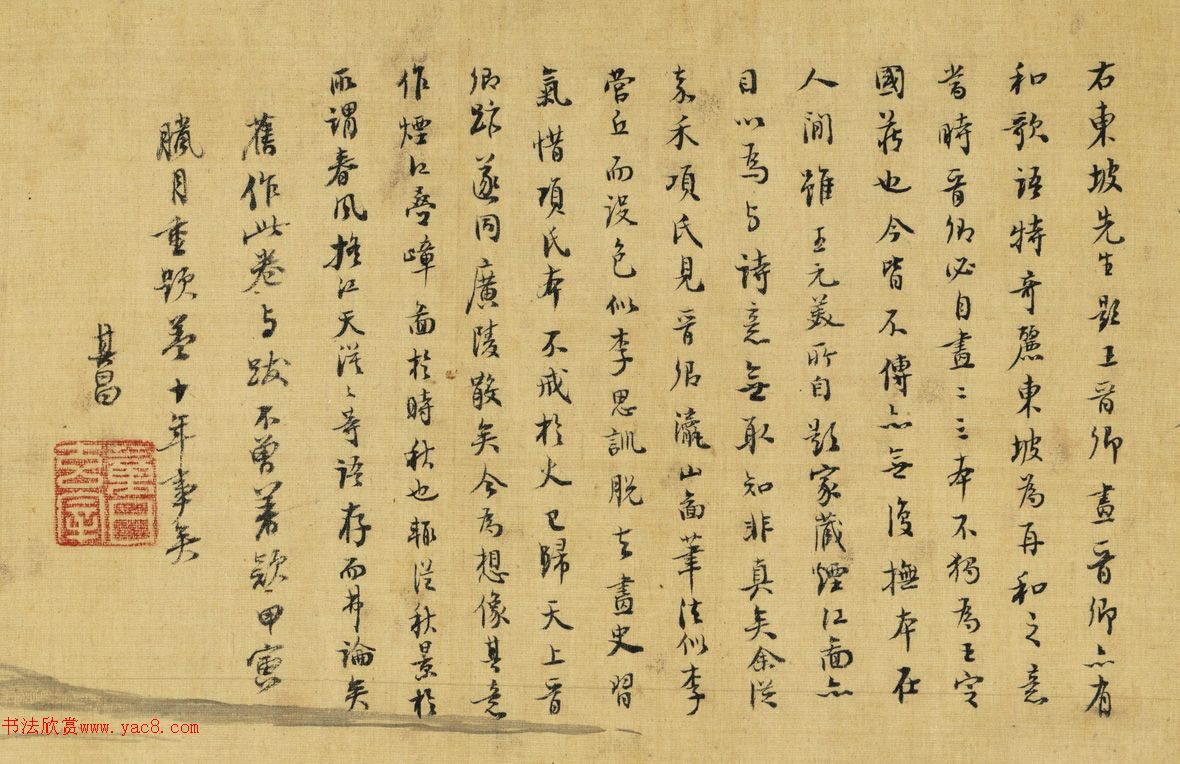 右東坡先生題王晉卿畫晉卿亦有
和歌語特奇麗東坡為再和之意
當時晉卿必自畫二三本不獨為王定
國藏也今皆不傳亦無復撫本在
人間雖王元美所自題家藏煙江圖亦
目以為與詩意無取知非真矣余從
嘉禾項氏見晉卿瀛山圖筆法似李
營丘而設色似李思訓脫去畫史習
氣惜項氏本不戒於火已歸天上晉
卿跡遂同廣陵散矣今為想像其意
作煙江疊嶂圖於時秋也輒從秋景於
所謂春風搖江天漠漠等語存而弗論矣
舊作此卷與跋不曾著款甲寅
臘月重題蓋十年事矣
其昌
董其昌
书法欣赏www.yac8.com